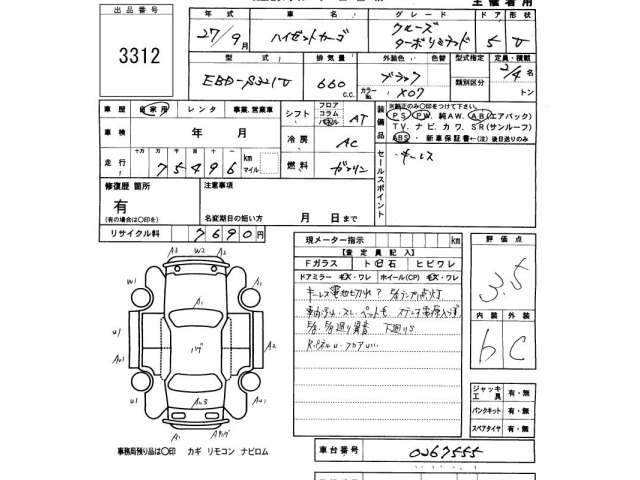 主催者用
出品番号
3312
年式 車名 グレード ドア 形状
27/9月 ハイゼットカーゴ クルーズターボリミテッド 5 V
型式 排気量 外装色 色替 型式指定 定員・積載
EBD-S321V 660 c.c. ブラック カラーNo. X07 類別区分 2/4名 トン
車歴 自家用 レンタ 事業・営業車
シフト フロア コラム パネル AT
装備品
※純正のみ〇印をつけて下さい。
PS. PW. 純AW. AB(エアバック)
TV. ナビ. カワ. SR(サンルーフ)
ABS. 新車保証書←(注)後日送りのみ
車検 年 月
冷房 AC
走行 十万 万 千 百 十 一
75496 km マイル
燃料 ガソリン
セールスポイント
・キーレス
修復歴 箇所
有
(有の場合は〇印を)
注意事項
名変期日の短い方 月 日まで
リサイクル料 7690円
現メーター指示 km
【査定員記入】
Fガラス トビ石 ヒビワレ
ドアミラー キズ・ワレ ホイール(CP)キズ・ワレ
キーレス電池切れ?
評価点
3.5
内装 外装
b C
ジャッキ工具 有・無
パンクキット 有・無
スペアタイヤ 有・無
A3 W2 A2
W1
A1
U1
A2
AU1
AU3
AU1
事務局預り品は〇印 カギ リモコン ナビロム
車台番号 0267555